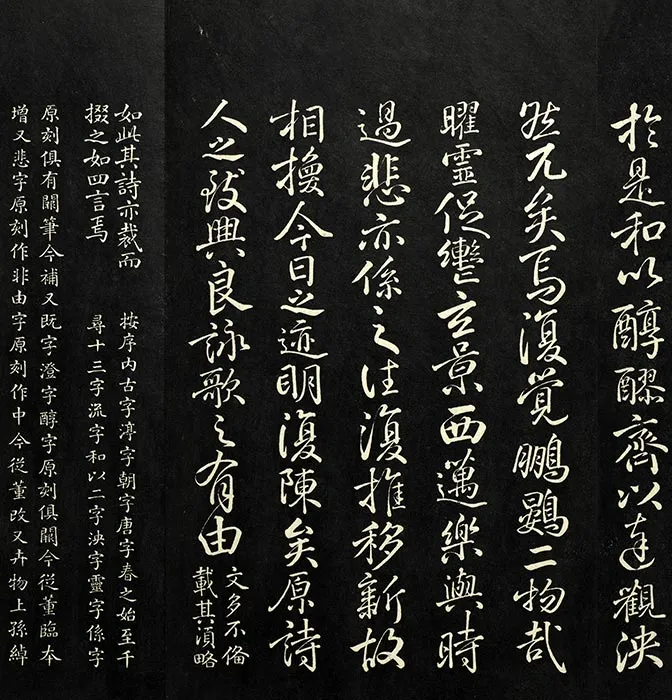 於是和以醇醪齊以達觀泱
然兀矣焉復覺鵬鷃二物哉
曜靈促轡玄景西邁樂與時
過悲亦係之往復推移新故
相換今日之迹明復陳矣原詩
人之致興良詠歌之有由
文多不俻
載其湏略
如此其詩亦裁而
掇之如四言焉
按序內古字渟字朝字唐字春之始至千
尋十三字流字和以二字泱字靈字係字
原刻俱有闕筆今補又既字澄字醇字原刻俱闕今從董臨本
增又悲字原刻作非由字原刻作中今從董改又卉物上孫綽